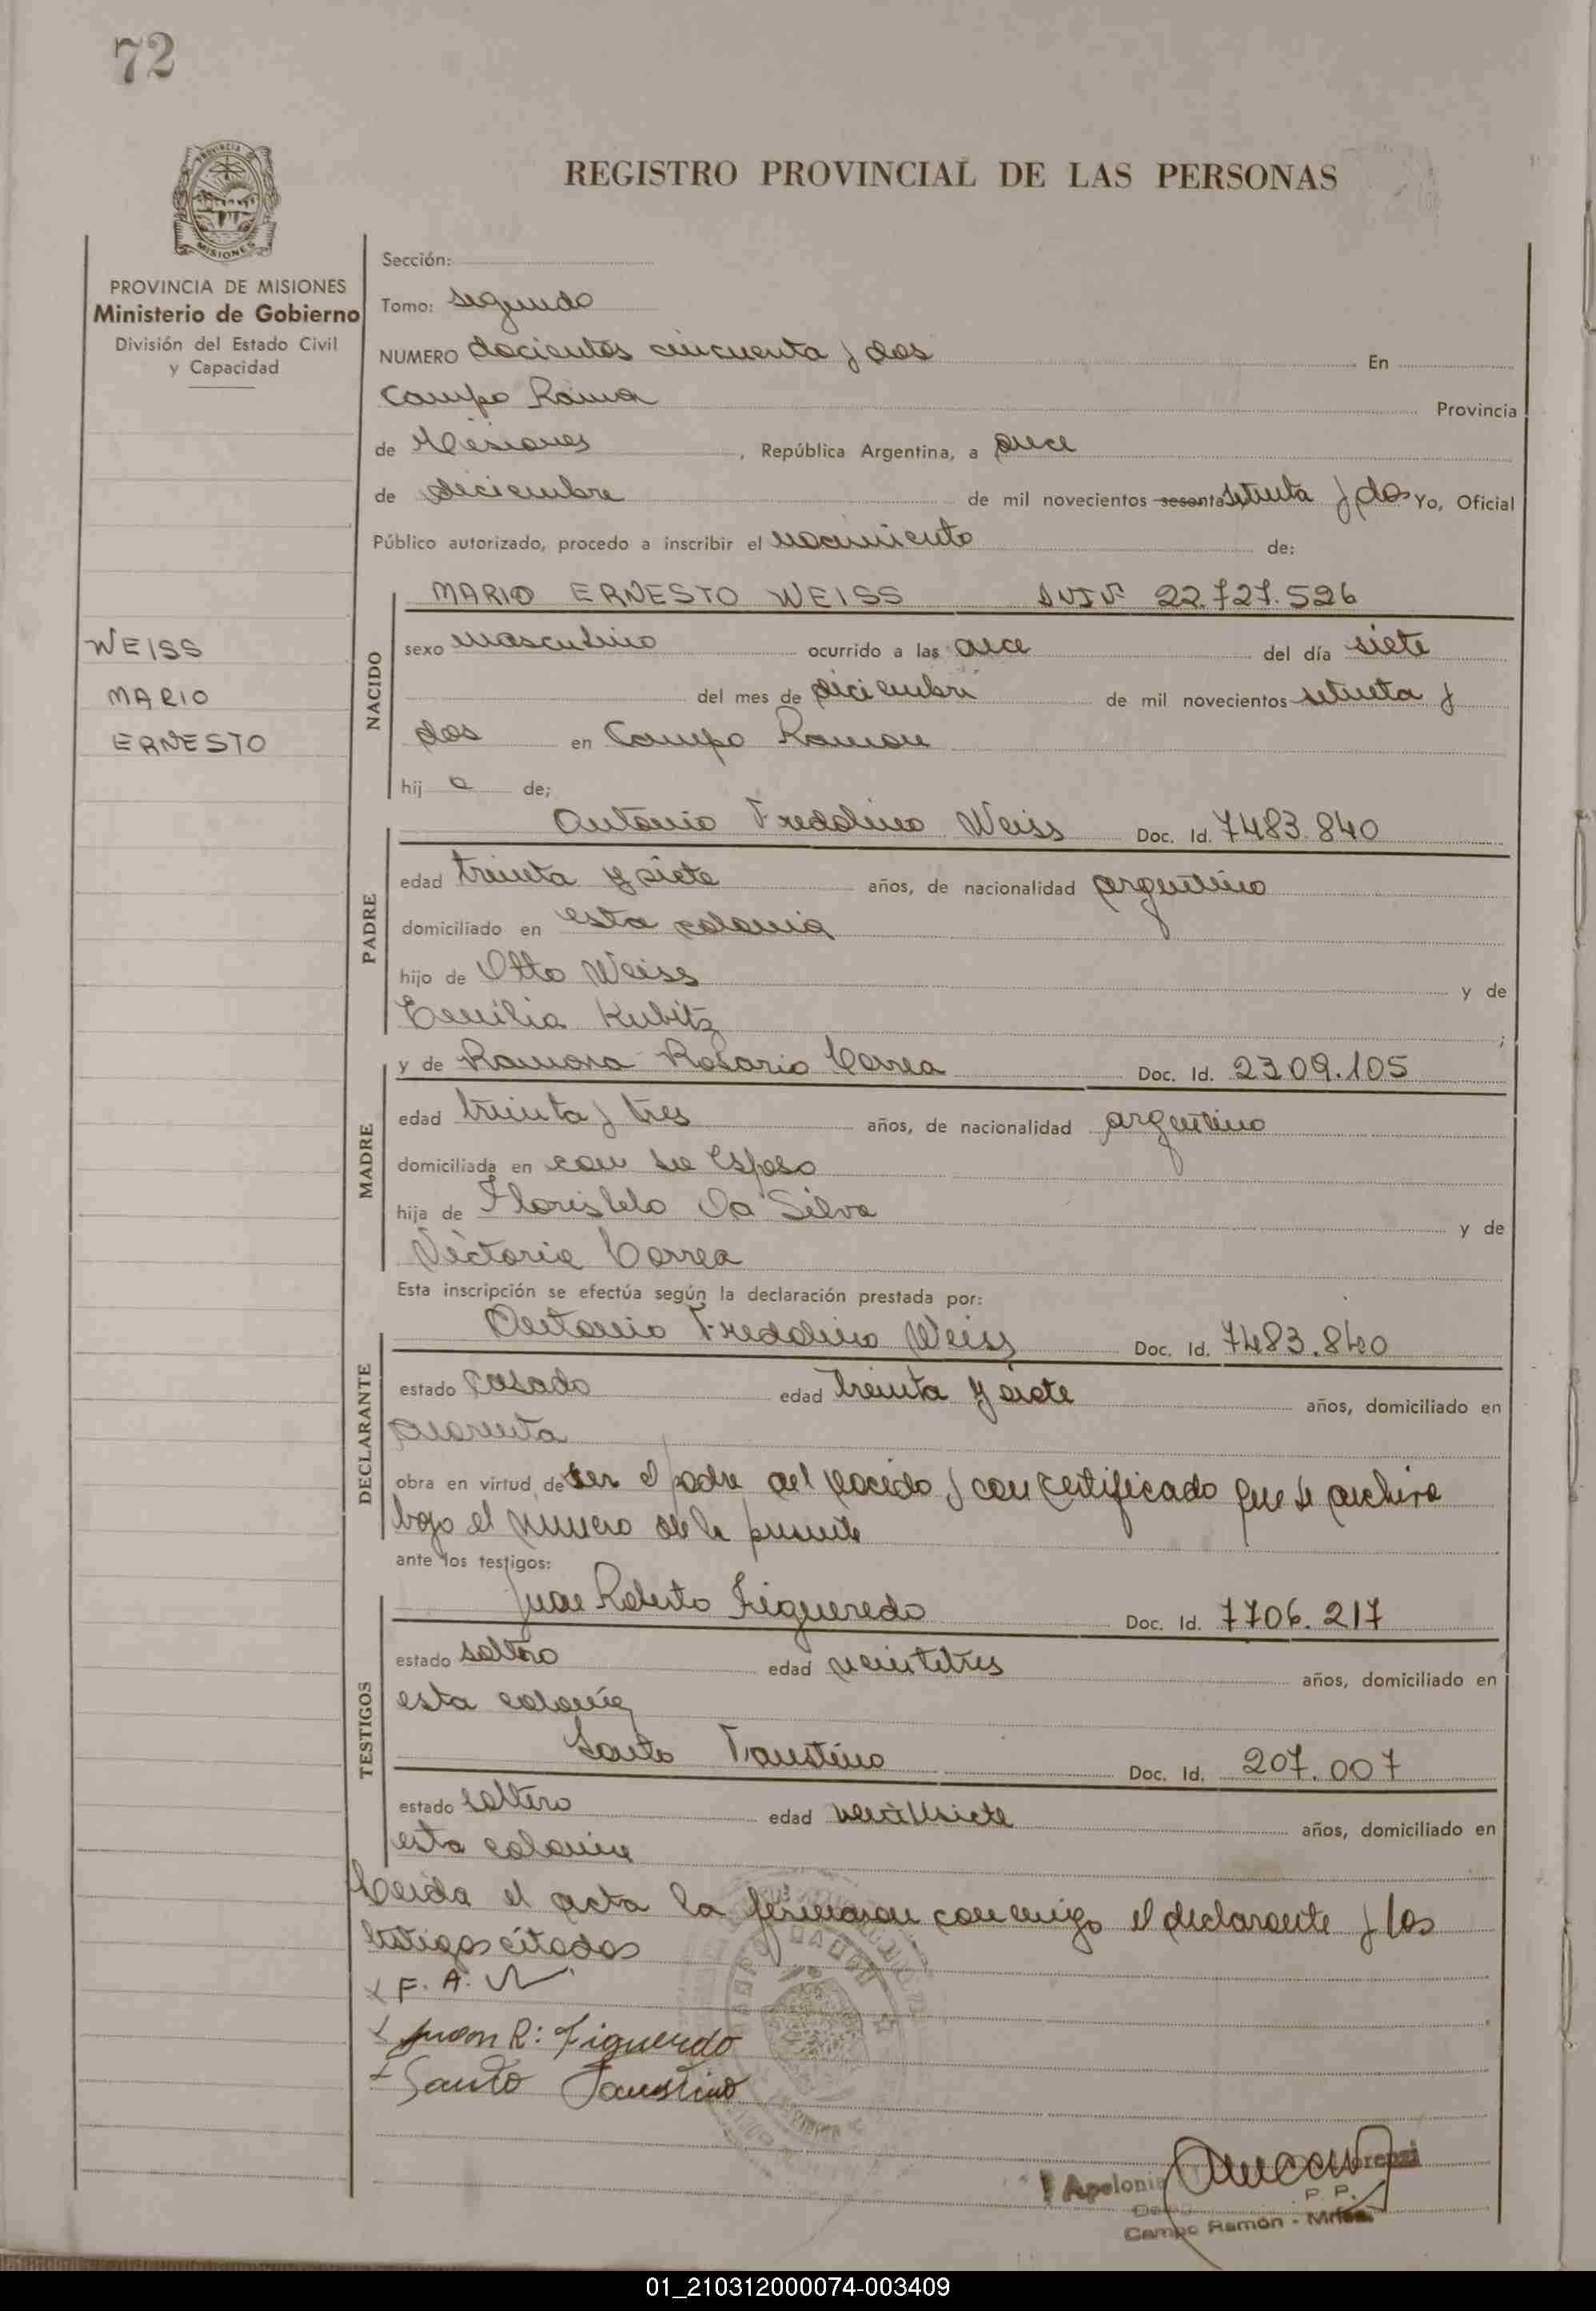 72
REGISTRO PROVINCIAL DE LAS PERSONAS
PROVINCIA DE MISIONES
Ministerio de Gobierno
División del Estado Civil
y Capacidad
WEISS
MARIO
ERNESTO
Sección:
Tomo: segundo
NUMERO docientos cincuenta y dos En
Campo Ramon Provincia
de Misiones, República Argentina, a once
de diciembre de mil novecientos sesenta setenta y dos Yo, Oficial
Público autorizado, procedo a inscribir el nacimiento de:
NACIDO
MARIO ERNESTO WEISS DNI Nº 22.727.526
sexo masculino ocurrido a las once del día siete
del mes de diciembre de mil novecientos setenta y
dos en Campo Ramon
hij o de;
PADRE
Antonio Fredolino Weiss Doc. Id. 7483.840
edad treinta y siete años, de nacionalidad argentino
domiciliado en esta colonia
hijo de Otto Weiss y de
Emilia Kubitz ;
MADRE
y de Ramona Rosario Correa Doc. Id. 2309.105
edad treinta y tres años, de nacionalidad argentino
domiciliada en con su esposo
hija de Da Silva y de
Victoria Correa
Esta inscripción se efectúa según la declaración prestada por:
DECLARANTE
Antonio Fredolino Weiss Doc. Id. 7483.840
estado casado edad treinta y siete años, domiciliado en
obra en virtud de ser el padre del nacido y con certificado que se archiva
bajo el numero de la presente
ante los testigos:
TESTIGOS
Juan Roberto Figueredo Doc. Id. 7706.217
estado soltero edad veintitres años, domiciliado en
esta colonia
Santo Faustino Doc. Id. 207.007
estado soltero edad veintisiete años, domiciliado en
esta colonia
Leida el acta la firmaron conmigo el declarante y los
testigos citados
x F. A. W
x Juan R: Figueredo
x Santo Faustino
Apelonia
P. P.
Campo Ramón - Mnes.
01_210312000074-003409